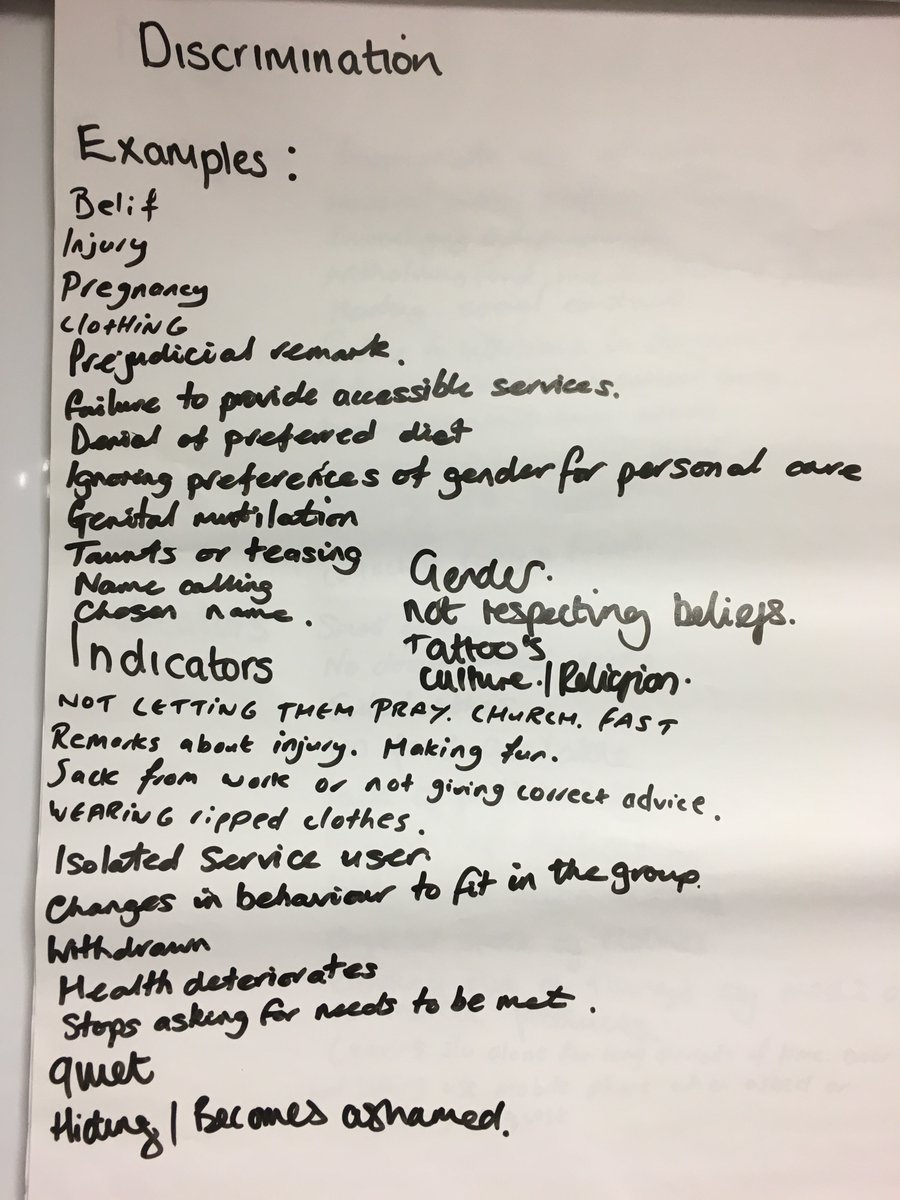 Discrimination
Examples:
Belif
Injury
Pregnancy
CLOTHING
Prejudicial remark.
failure to provide accessible services.
Denial of preferred diet
Ignoring preferences of gender for personal care
Genital mutilation
Taunts or teasing
Name calling
Chosen name.
Gender.
not respecting beliefs.
Tattoo's
culture./Religion.
Indicators
NOT LETTING THEM PRAY. CHURCH. FAST
Remarks about injury. Making fun.
Sack from work or not giving correct advice.
WEARING ripped clothes.
Isolated service user.
Changes in behaviour to fit in the group.
Withdrawn
Health deteriorates
Stops asking for needs to be met.
quiet
Hiding/Becomes ashamed.